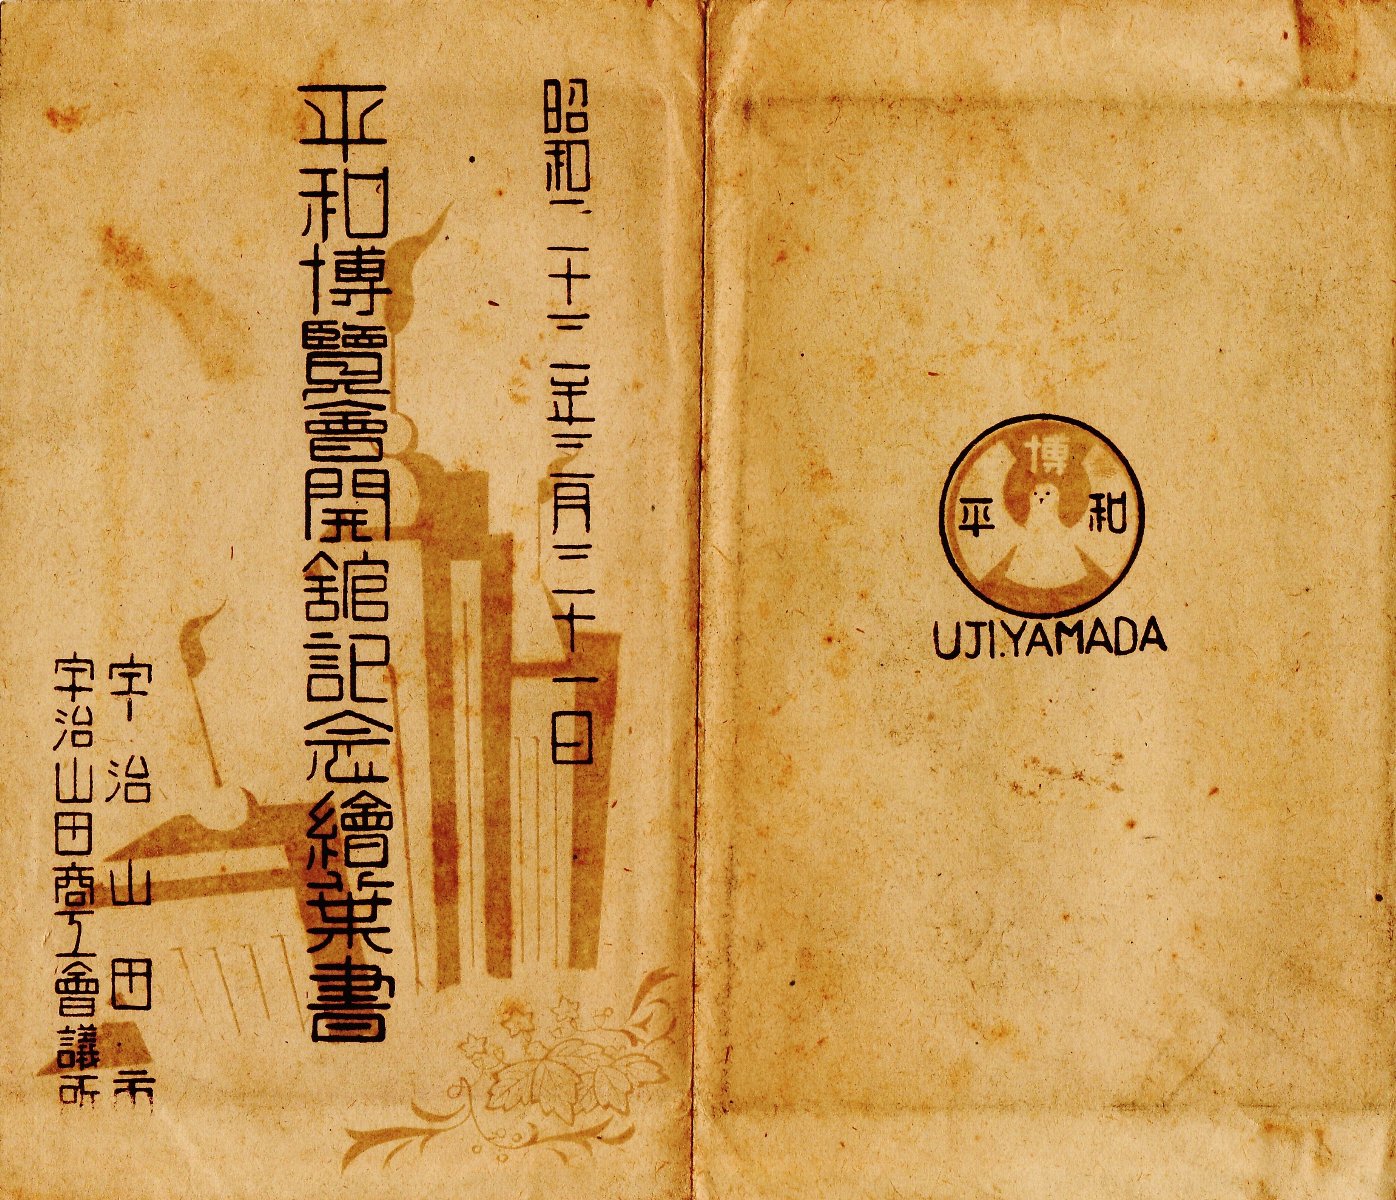 昭和二十三年三月三十一日
平和博覽會開舘記念繪葉書
宇治山田市
宇治山田商工會議所
博
平和
UJI.YAMADA